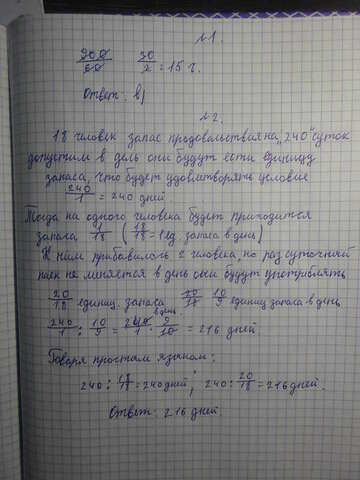 №1.
900/60 30/2 = 15 г.
Ответ: в)
№2.
18 человек запас продовольствия на „240" суток
допустим в день они будут есть единицу
запаса, что будет удовлетворять условие
240/1 = 240 дней
Тогда на одного человека будет приходится
запаса 1/18 (18/18 = 1 ед. запаса в день)
К ним прибавилось 2 человека, но раз суточный
паек не меняется в день они будут употреблять
20/18 единиц. запаса в день 20/18 10/9 единиц запаса в день
240/1 : 10/9 = 240/1 · 9/10 = 216 дней
Говоря простым языком:
240 : 18/18 = 240 дней ; 240 : 20/18 = 216 дней.
Ответ: 216 дней